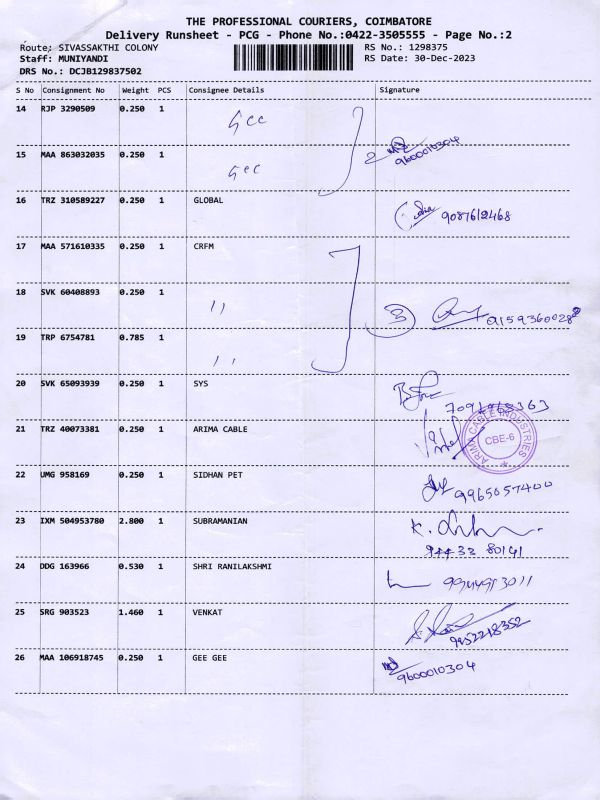 THE PROFESSIONAL COURIERS, COIMBATORE
Delivery Runsheet - PCG - Phone No.:0422-3505555 - Page No.:2
Route: SIVASSAKTHI COLONY RS No.: 1298375
Staff: MUNIYANDI RS Date: 30-Dec-2023
DRS No.: DCJB129837502
S No Consignment No Weight PCS Consignee Details Signature
14 RJP 3290509 0.250 1
15 MAA 863032035 0.250 1 2 9600010304
16 TRZ 310589227 0.250 1 GLOBAL 9087612468
17 MAA 571610335 0.250 1 CRFM
18 SVK 60408893 0.250 1 11 3
19 TRP 6754781 0.785 1 11
20 SVK 65093939 0.250 1 SYS
21 TRZ 40073381 0.250 1 ARIMA CABLE ARIMA CABLE INDUSTRIES CBE-6
22 UMG 958169 0.250 1 SIDHAN PET 9965057400
23 IXM 504953780 2.800 1 SUBRAMANIAN
94433 80141
24 DDG 163966 0.530 1 SHRI RANILAKSHMI
25 SRG 903523 1.460 1 VENKAT 9952218352
26 MAA 106918745 0.250 1 GEE GEE 9600010304